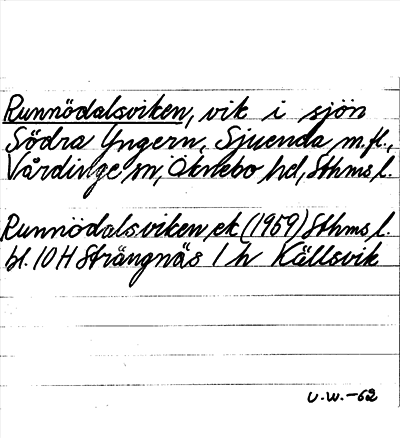 Runnödalsviken, vik i sjön
Södra Yngern, Sjuenda m.fl.,
Vårdinge sn, Öknebo hd, Sthms l.
Runnödalsviken ek (1959) Sthms l.
bl. 10 H Strängnäs 1 h Källsvik
U.W.-62